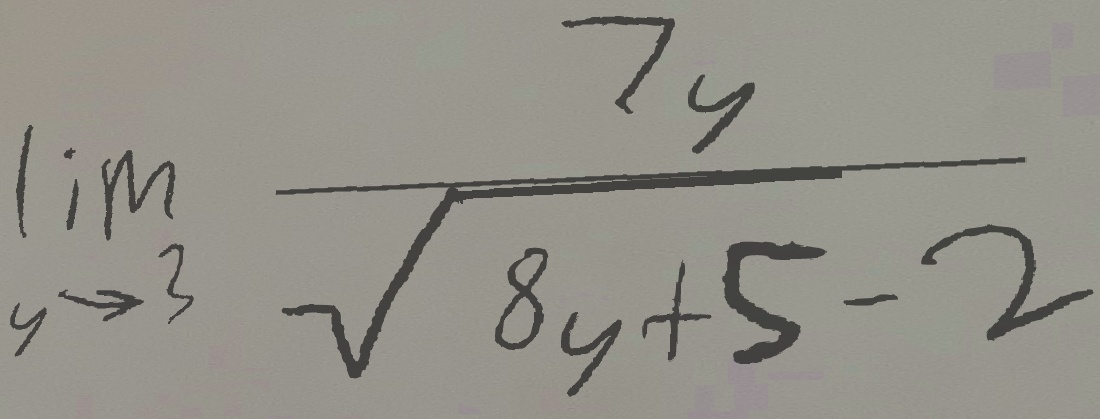 \lim_{y \to 3} \frac{7y}{\sqrt{8y+5}-2}